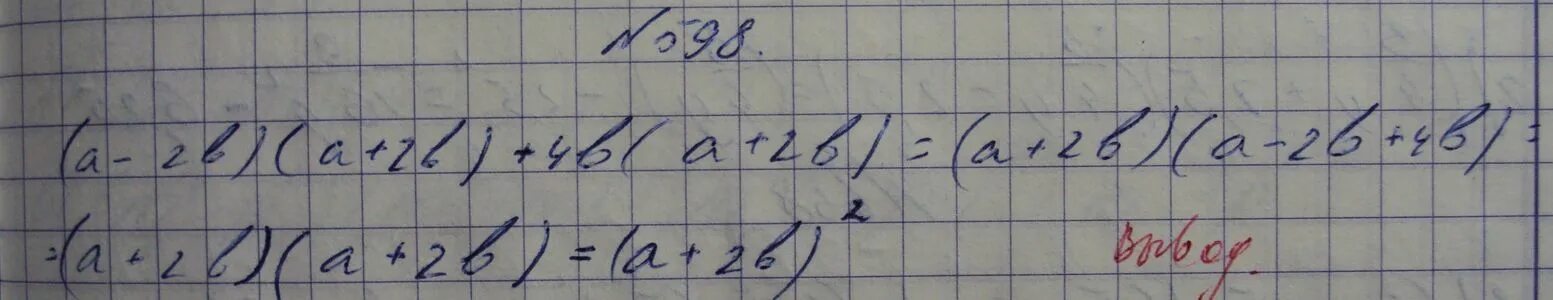 №598.
(a-2b)(a+2b)+4b(a+2b)=(a+2b)(a-2b+4b)=
=(a+2b)(a+2b)=(a+2b)²
Вывод.